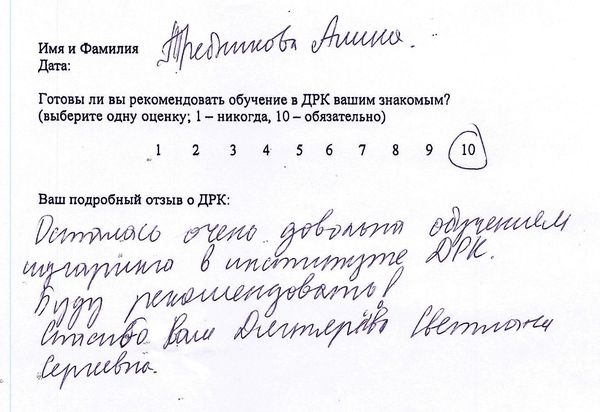 Имя и Фамилия Требникова Алина.
Дата:
Готовы ли вы рекомендовать обучение в ДРК вашим знакомым?
(выберите одну оценку; 1 – никогда, 10 – обязательно)
1 2 3 4 5 6 7 8 9 10
Ваш подробный отзыв о ДРК:
Осталась очень довольна обучением
шугаринга в институте ДРК.
Буду рекомендовать!
Спасибо Вам Светлана
Сергеевна.